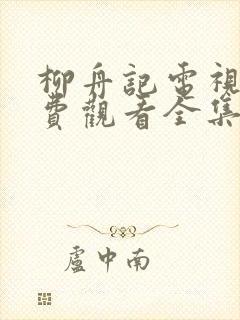 柳舟記電視
費觀看全集
盧中南